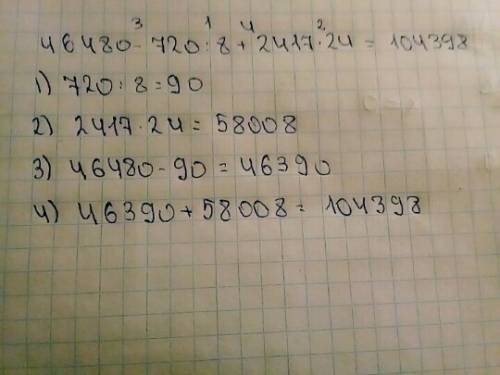 46480 - 720 : 8 + 2417 · 24 = 104398
3 1 4 2
1) 720 : 8 = 90
2) 2417 · 24 = 58008
3) 46480 - 90 = 46390
4) 46390 + 58008 = 104398